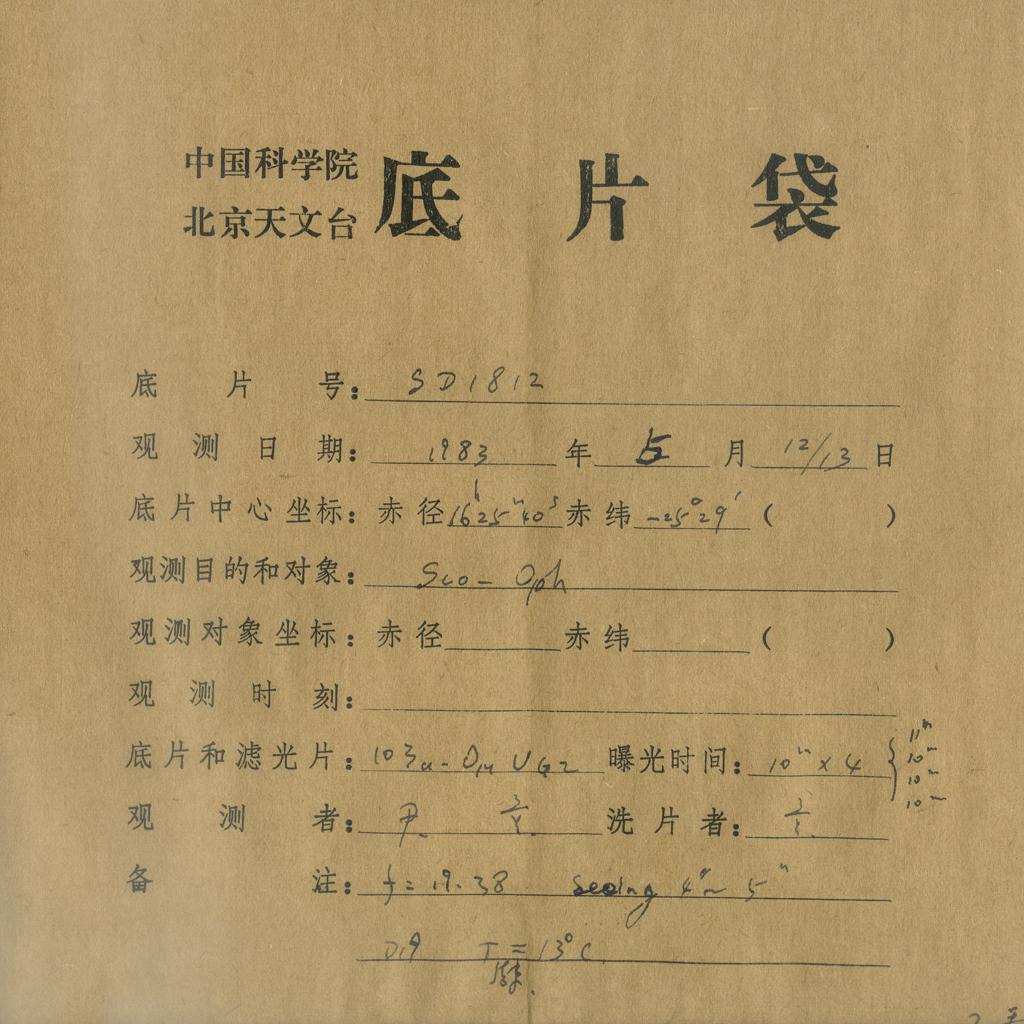 中国科学院
北京天文台
底片袋
底片号: SD1812
观测日期: 1983 年 5 月 12/13 日
底片中心坐标: 赤径 16h25m40s 赤纬 -25°29′ ( )
观测目的和对象: Sco - Oph
观测对象坐标: 赤径 赤纬 ( )
观测时刻:
底片和滤光片: 103a-O, UG2 曝光时间: 10m x 4 { 11m
10m
10m
10m
观测者: 尹 洗片者:
备注: f = 19.38 seeing 4″~5″
D19 T = 13°C